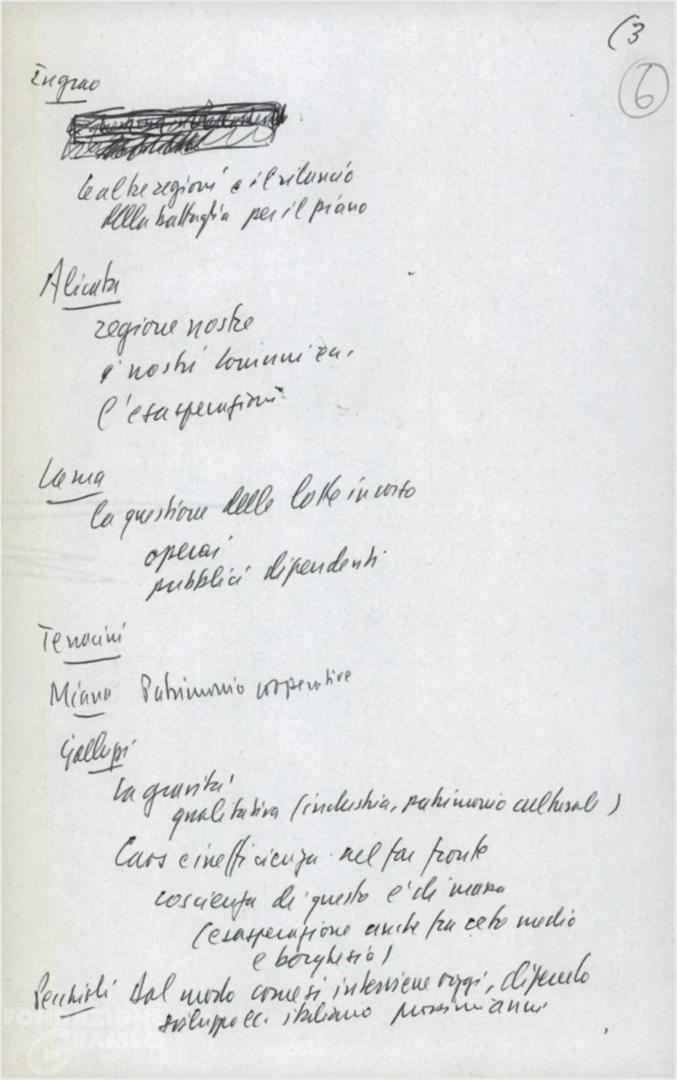 (3
6
Ingrao
le altre regioni e il rilancio
della battaglia per il piano
Alicata
regione nostre
i nostri
l'esasperazioni
Lama
la questione delle lotte in corso
operai
pubblici dipendenti
Terracini
Miana Patrimonio cooperative
Galluzzi
la gravità
qualitativa (industria, patrimonio culturale)
Caos e inefficienza nel far fronte
coscienza di questo è di massa
(esasperazione anche fra ceto medio
e borghesia)
Pecchioli Dal modo come si interviene oggi, dipende
sviluppo ec. italiano prossimi anni
FONDAZIONE
GRAMSCI